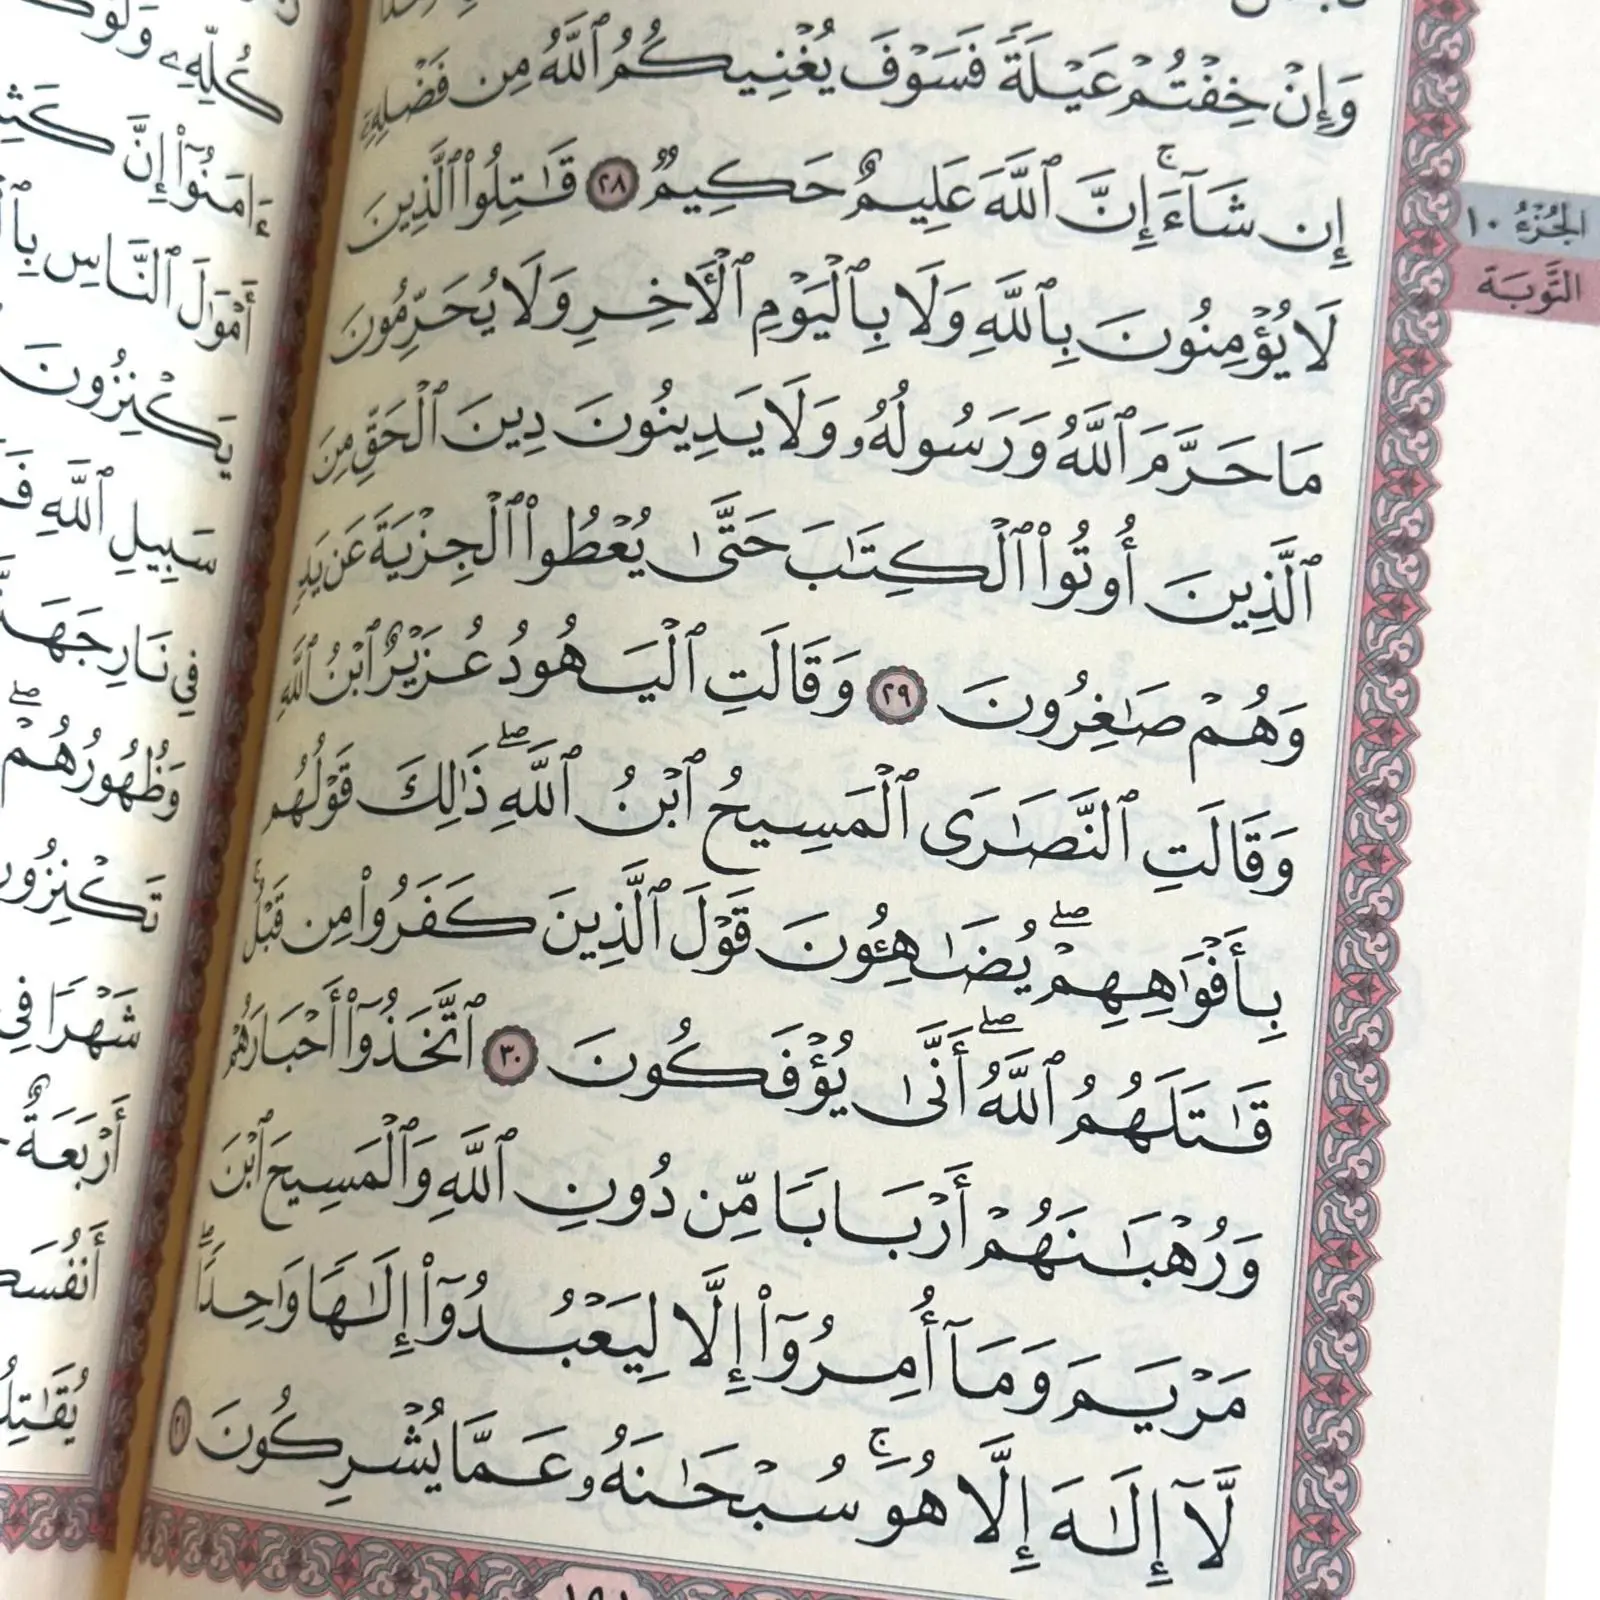 وَإِنْ خِفْتُمْ عَيْلَةً فَسَوْفَ يُغْنِيكُمُ ٱللَّهُ مِن فَضْلِهِۦٓ
إِن شَآءَۚ إِنَّ ٱللَّهَ عَلِيمٌ حَكِيمٌ ٢٨ قَـٰتِلُوا۟ ٱلَّذِينَ
لَا يُؤْمِنُونَ بِٱللَّهِ وَلَا بِٱلْيَوْمِ ٱلْـَٔاخِرِ وَلَا يُحَرِّمُونَ
مَا حَرَّمَ ٱللَّهُ وَرَسُولُهُۥ وَلَا يَدِينُونَ دِينَ ٱلْحَقِّ مِنَ
ٱلَّذِينَ أُوتُوا۟ ٱلْكِتَـٰبَ حَتَّىٰ يُعْطُوا۟ ٱلْجِزْيَةَ عَن يَدٍ
وَهُمْ صَـٰغِرُونَ ٢٩ وَقَالَتِ ٱلْيَهُودُ عُزَيْرٌ ٱبْنُ ٱللَّهِ
وَقَالَتِ ٱلنَّصَـٰرَى ٱلْمَسِيحُ ٱبْنُ ٱللَّهِۖ ذَٰلِكَ قَوْلُهُم
بِأَفْوَٰهِهِمْۖ يُضَـٰهِـُٔونَ قَوْلَ ٱلَّذِينَ كَفَرُوا۟ مِن قَبْلُۚ
قَـٰتَلَهُمُ ٱللَّهُۖ أَنَّىٰ يُؤْفَكُونَ ٣٠ ٱتَّخَذُوٓا۟ أَحْبَارَهُمْ
وَرُهْبَـٰنَهُمْ أَرْبَابًا مِّن دُونِ ٱللَّهِ وَٱلْمَسِيحَ ٱبْنَ
مَرْيَمَ وَمَآ أُمِرُوٓا۟ إِلَّا لِيَعْبُدُوٓا۟ إِلَـٰهًا وَٰحِدًاۖ
لَّآ إِلَـٰهَ إِلَّا هُوَۚ سُبْحَـٰنَهُۥ عَمَّا يُشْرِكُونَ ٣١
الجُزْءُ ١٠
التَّوبَة
كُلِّهِۦ وَلَوْ
ءَامَنُوٓا۟ إِنَّ
أَمْوَٰلَ ٱلنَّاسِ
يَكْنِزُونَ
سَبِيلِ ٱللَّهِ
فِى نَارِ
وَظُهُورُهُمْۖ
شَهْرًا فِى
أَرْبَعَةٌ